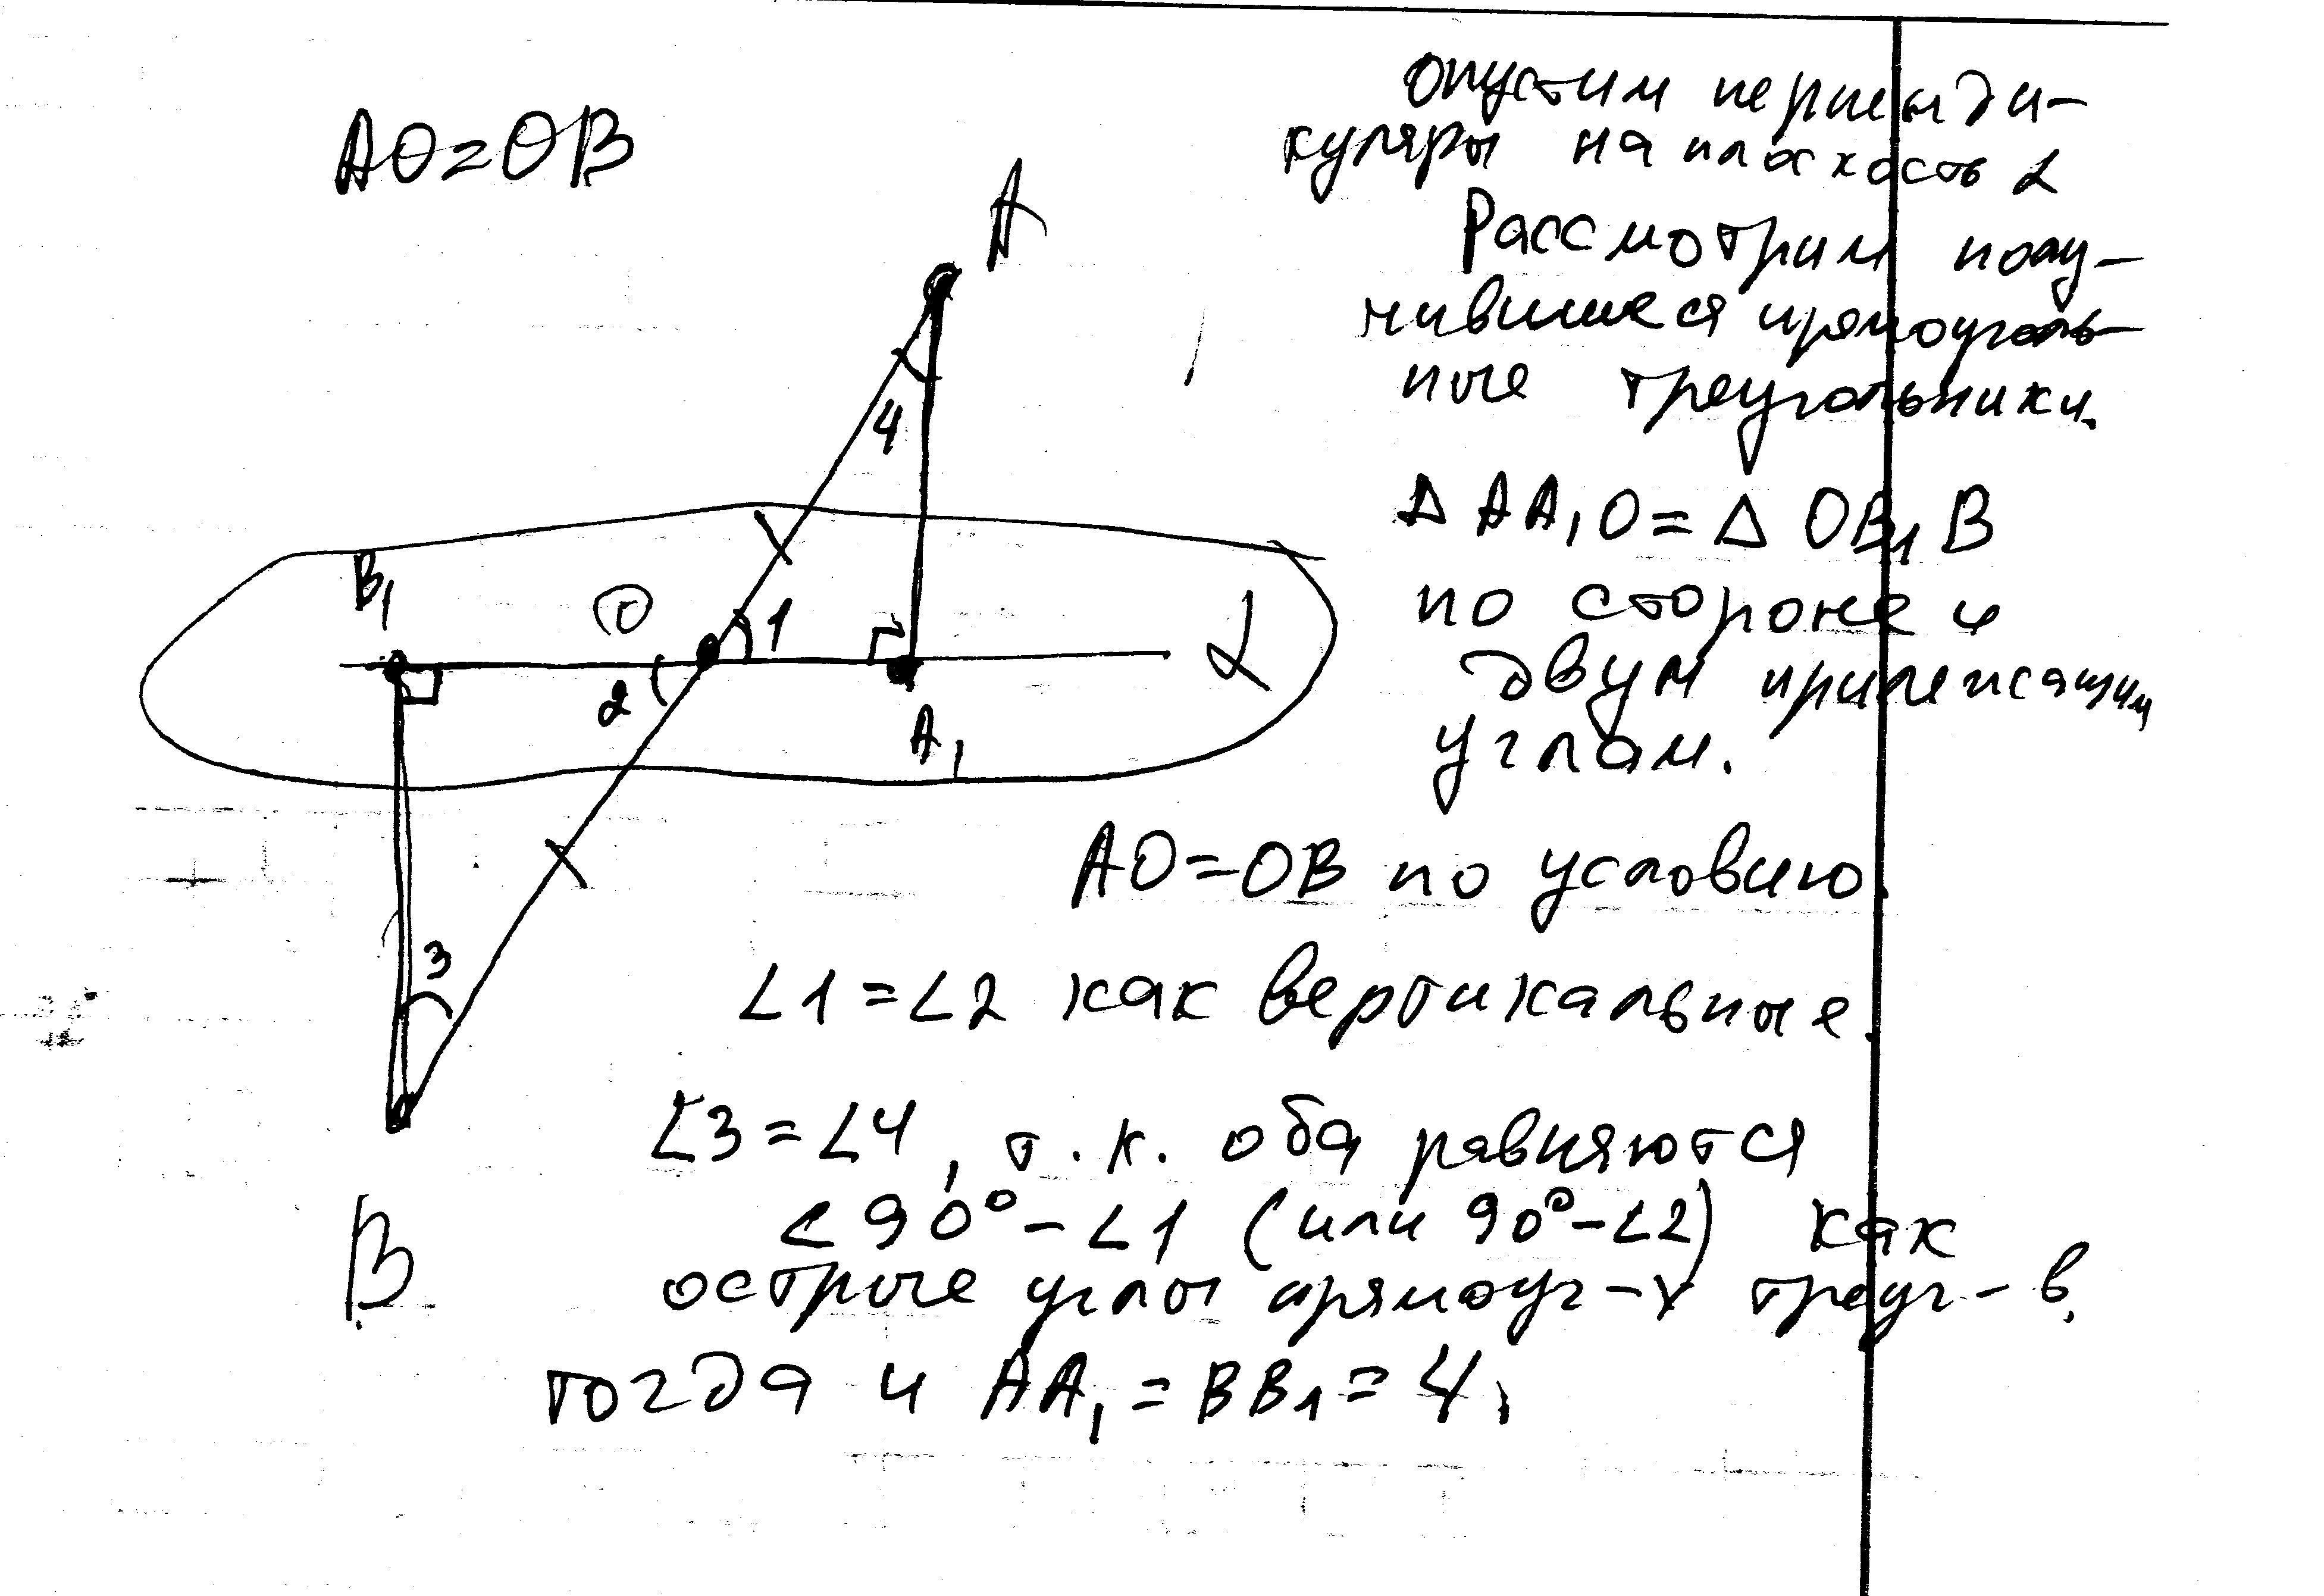 AO=OB
опустим перпенди-
куляры на плоскость α
Рассмотрим полу-
чившиеся прямоуголь-
ные треугольники.
A
4
Δ AA₁O = Δ OB₁B
B₁
O
1
по стороне и
α
2
двум прилежащим
A₁
углам.
AO=OB по условию.
3
∠1=∠2 как вертикальные.
∠3=∠4, т.к. оба равняются
∠90°-∠1 (или 90°-∠2) как
B
острые углы прямоуг-х треуг-в.
тогда и AA₁=BB₁=4.